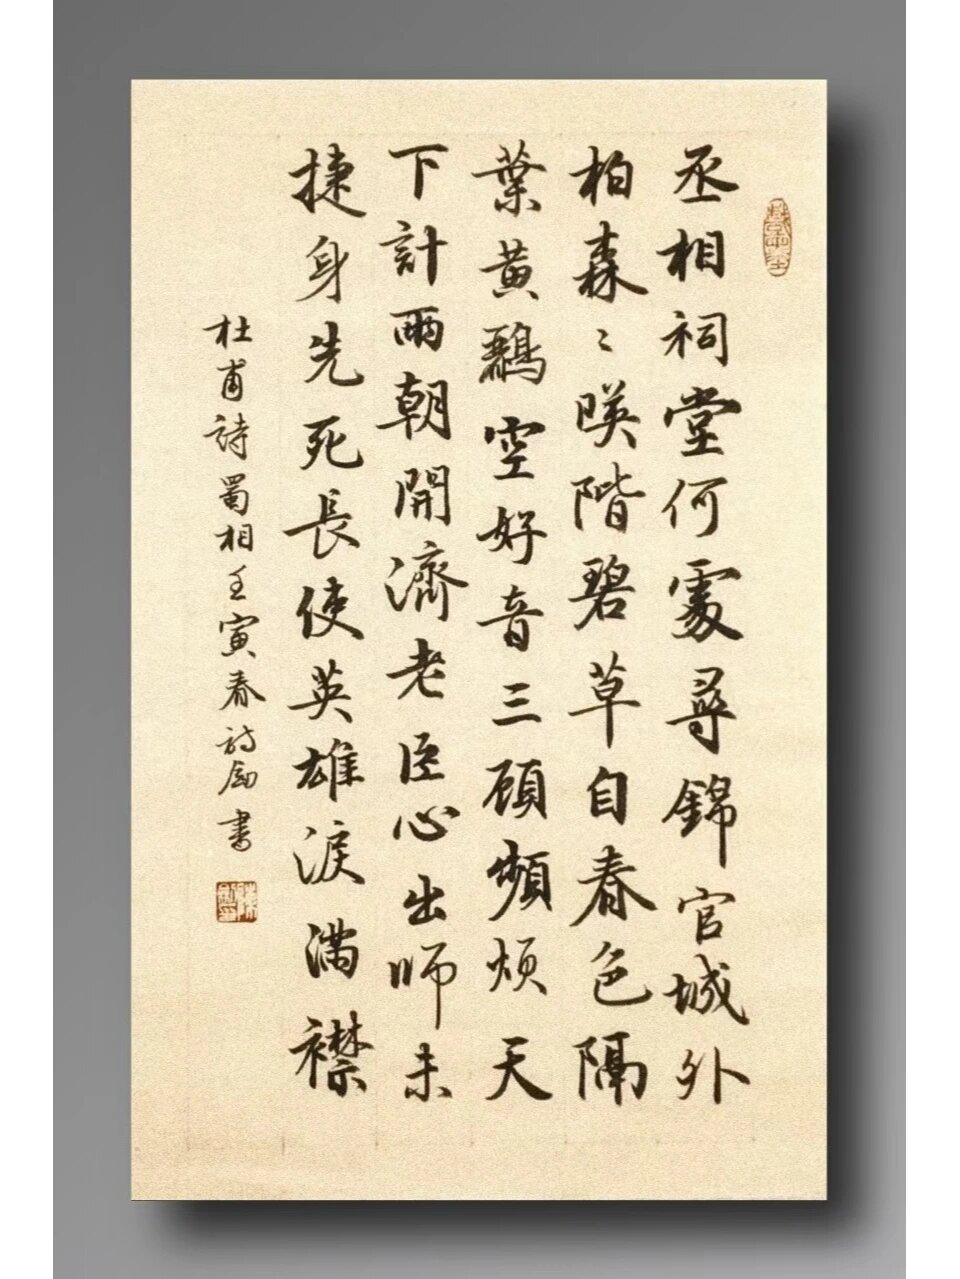 丞相祠堂何處尋錦官城外
柏森〻暎階碧草自春色隔
葉黃鸝空好音三顧頻煩天
下計兩朝開濟老臣心出師未
捷身先死長使英雄淚滿襟
杜甫詩蜀相壬寅春書